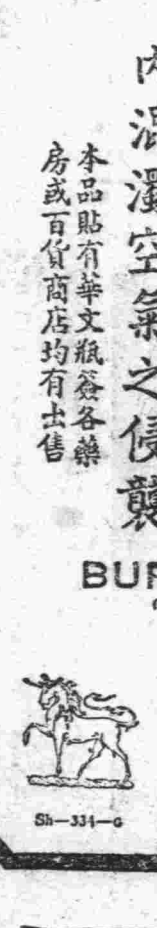 內混濁空氣之侵襲
本品貼有華文瓶簽各藥
房或百貨商店均有出售
BUR
Sh—334—G